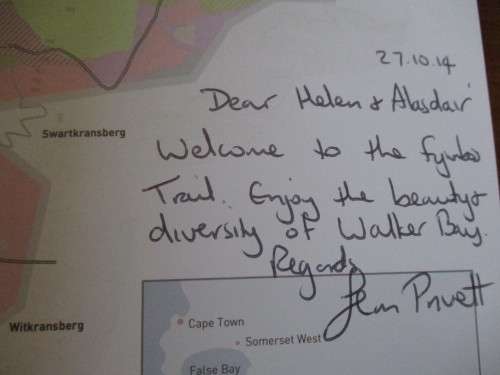 27.10.14
Dear Helen & Alasdair
Swartkransberg
Welcome to the Fynbos
Trail. Enjoy the beauty &
diversity of Walker Bay.
Regards
Privett
Witkransberg
Cape Town
Somerset West
False Bay